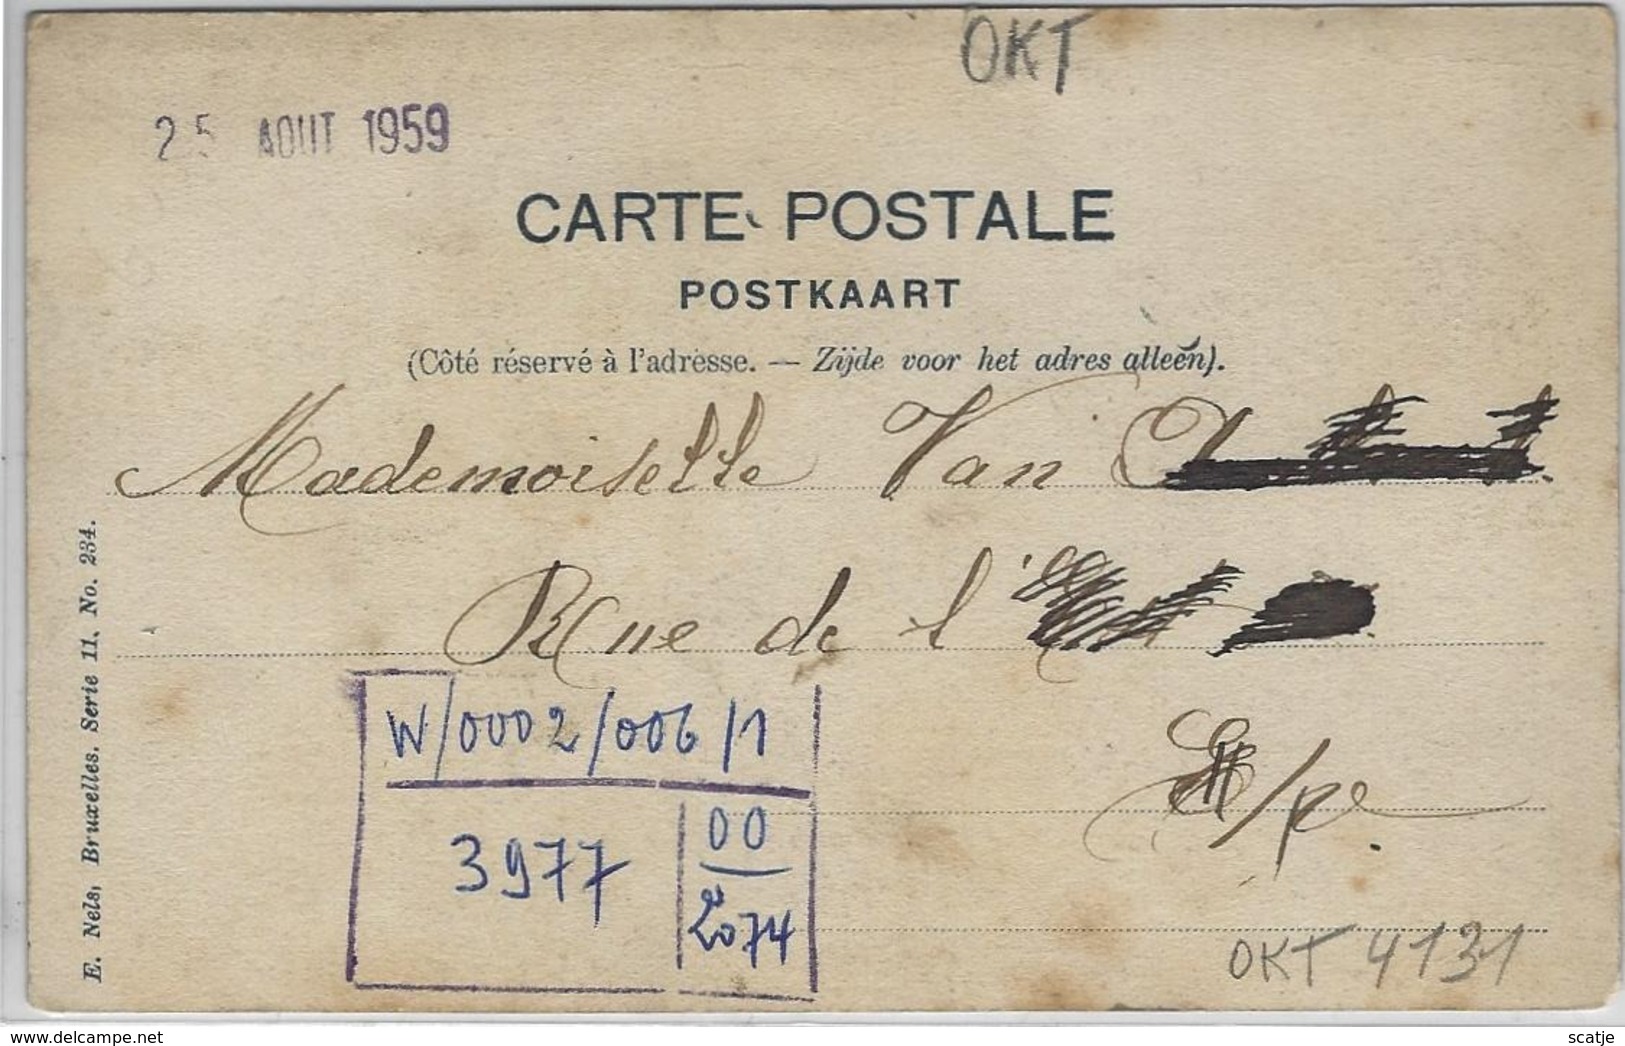 OKT
25 AOUT 1959
CARTE POSTALE
POSTKAART
(Côté réservé à l'adresse. — Zijde voor het adres alleen).
Mademoiselle Van
Rue de l'
E. Nels, Bruxelles. Serie 11. No. 234.
W/0002/006/1
3977
00
2074
OKT 4131
www.delcampe.net
scatje